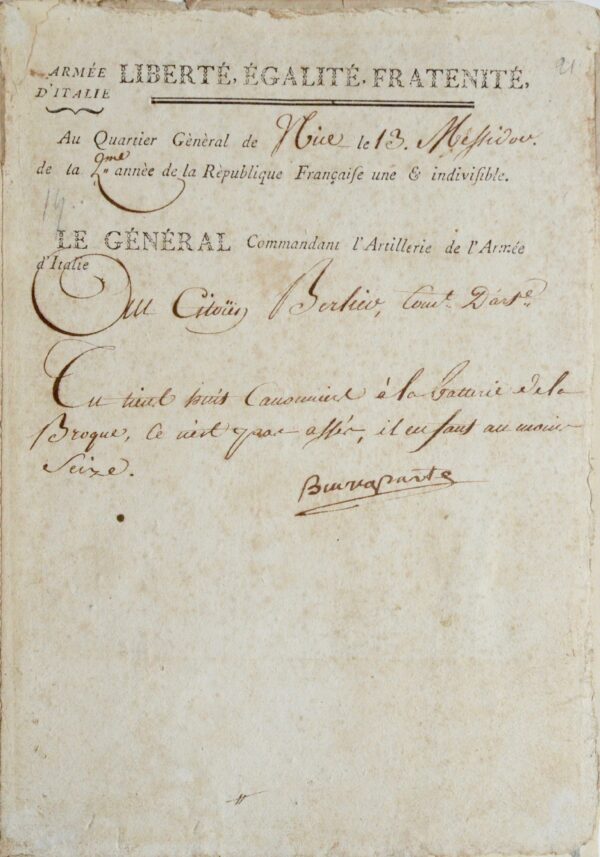 21
ARMÉE D'ITALIE
LIBERTÉ, ÉGALITÉ, FRATENITÉ,
Au Quartier Gènèral de Nice le 13. Messidor.
de la 2.me annèe de la Rèpublique Françaiſe une & indiviſible.
LE GÉNÉRAL Commandant l'Artillerie de l'Armée
d'Italie
Au Citoÿen Berlier, Com.t D'art.e
Tu tient huit Canonniers à la batterie de la
Broque, Ce n'est pas assés, il en faut au moins
Seize.
Buonaparte